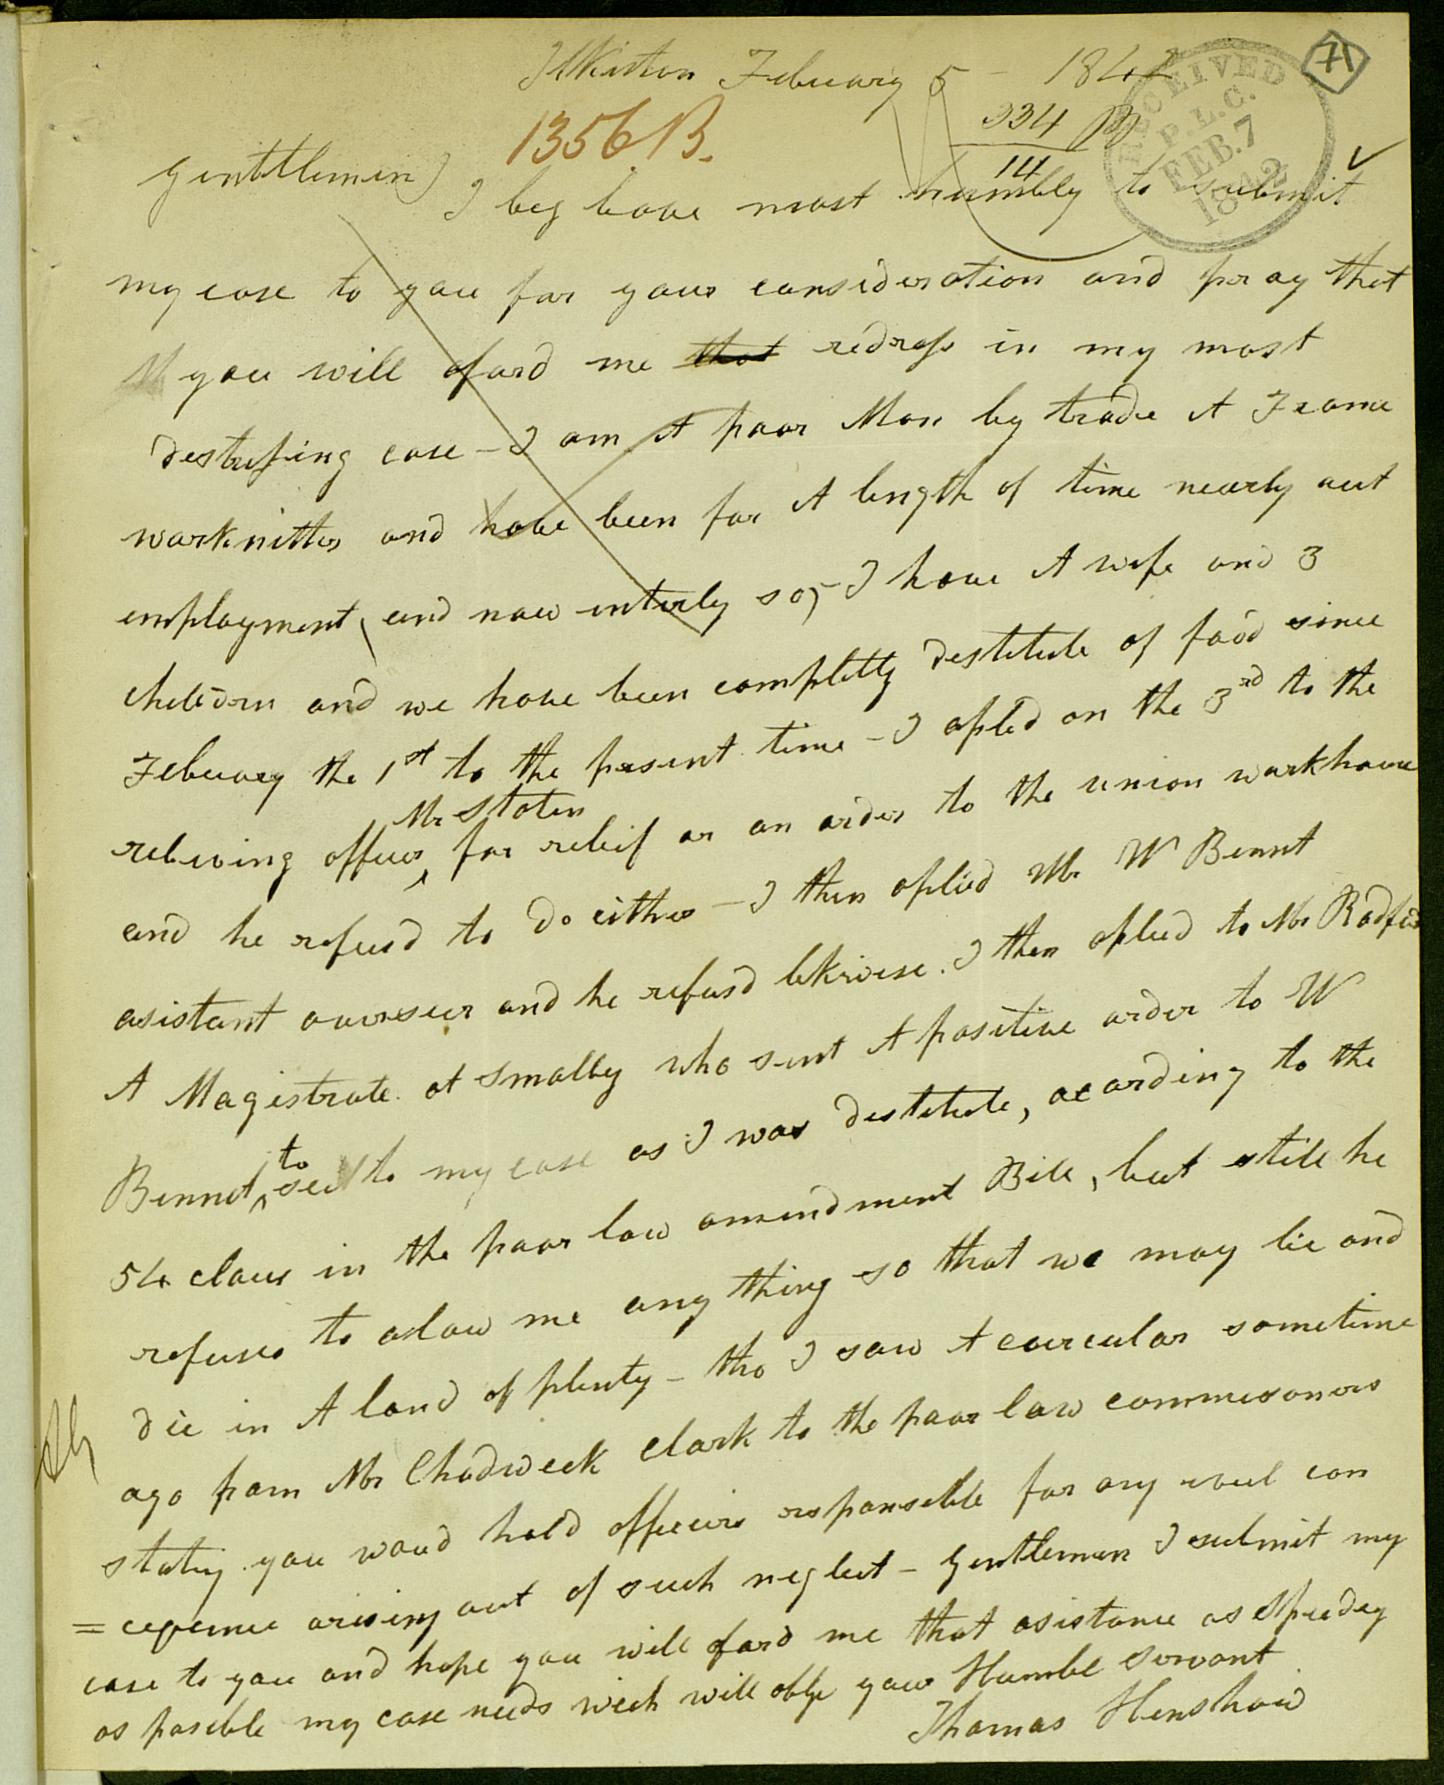 Ilkiston Febuary 5 - 1842
71
RECEIVED P.L.C. FEB. 7 1842
1356. B.
334 B
14
Genttlemen)
I beg leave most humbly to submit
my case to you for your consideration and pray that
you will aford me that redress in my most
destressing case - I am A poor Man by trade A Frame
workknitter and have been for A length of time nearly out
employment, and now entirly so, - I have A wife and 3
children and we have been completly destitute of food since
Febuary the 1st to the present time - I aplied on the 3rd to the
Mr Staten
releiving officer, for releif or an order to the union workhouse
and he refused to do either - I then aplied Mr W Bennt
asistant overseer and he refusd likewise. I then aplied to Mr Radford
A Magistrate at Smalley who sent A positive order to W
to
Bennet, see to my case as I was destitute, acording to the
54 claus in the poor law amendment Bill, but still he
refuses to alow me any thing so that we may lie and
die in A land of plenty - tho I saw A curcular sometime
ago from Mr Chadweck Clark to the poor law commissoners
stating you woud hold officers responsible for any evil con
= cequence arising out of such neglect - Gentlemen I submit my
case to you and hope you will aford me that asistance as Speedey
as posible my case needs wich will oblige your Humble Servant
Thomas Henshaw